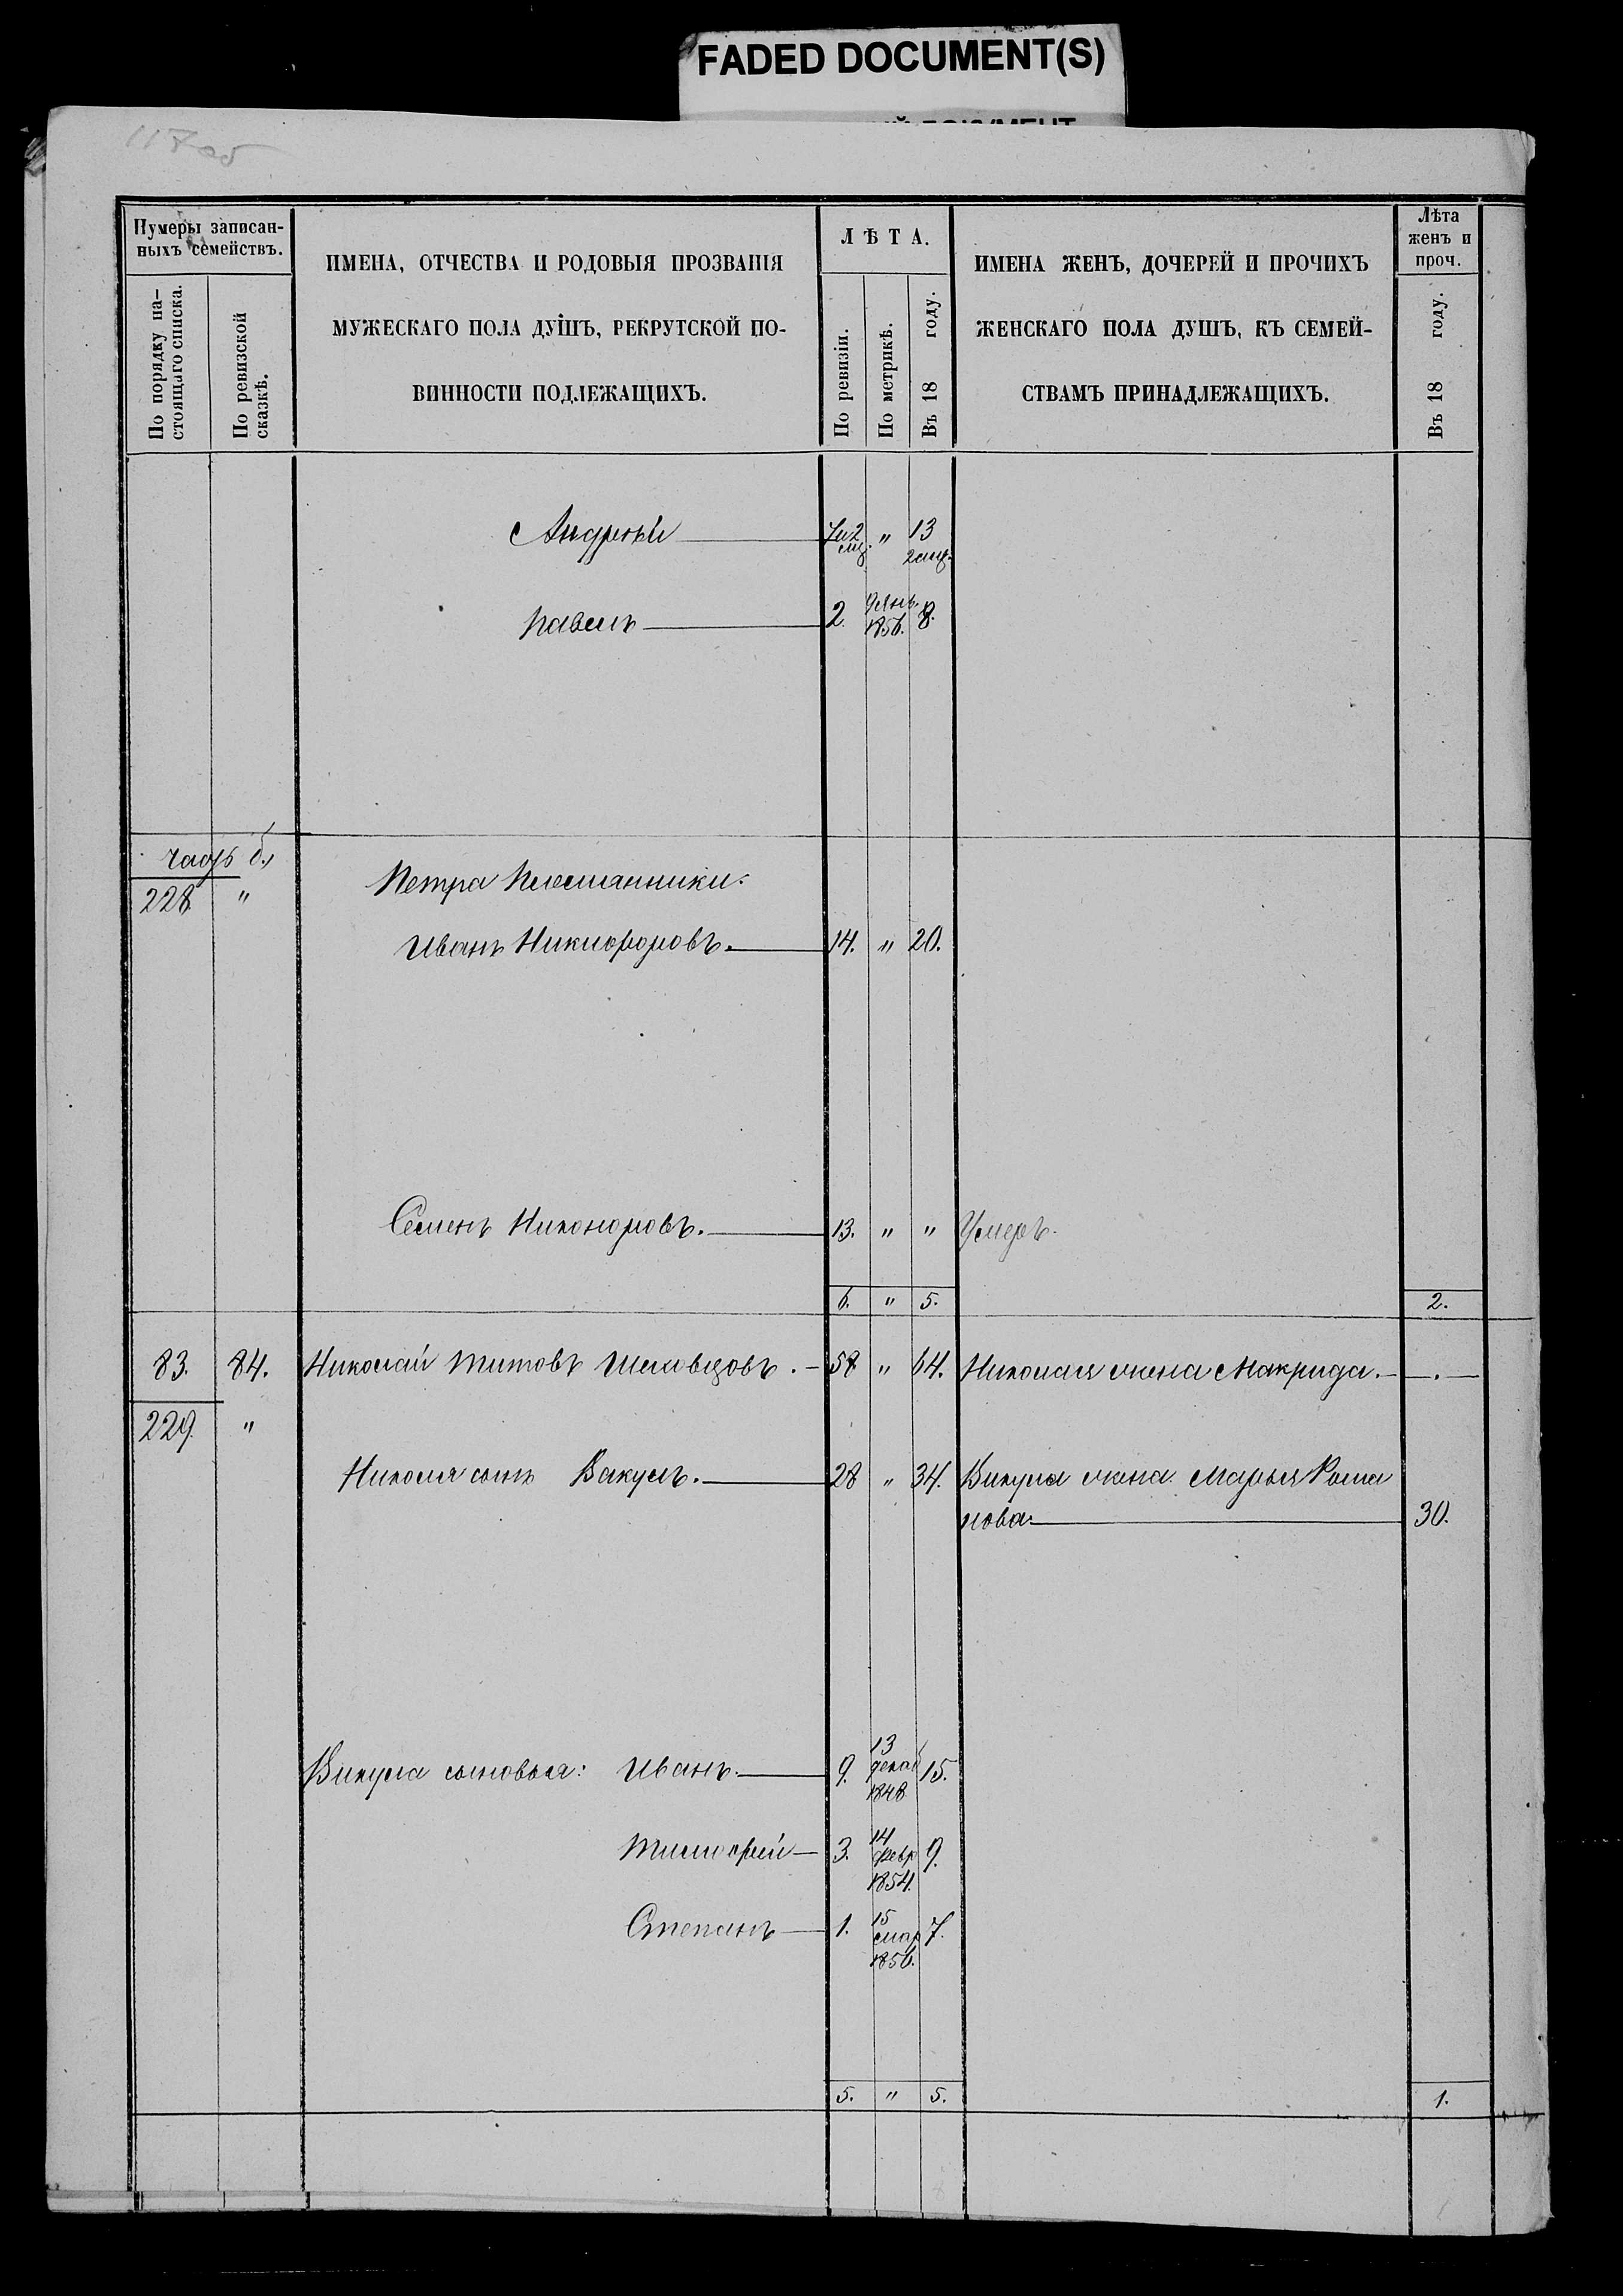 FADED DOCUMENT(S)
117 об
Нумеры записан-
ныхъ семействъ.
По порядку на-
стоящаго списка.
По ревизской
сказкѣ.
ИМЕНА, ОТЧЕСТВА И РОДОВЫЯ ПРОЗВАНІЯ
МУЖЕСКАГО ПОЛА ДУШЪ, РЕКРУТСКОЙ ПО-
ВИННОСТИ ПОДЛЕЖАЩИХЪ.
ЛѢТА.
По ревизіи.
По метрикѣ.
Въ 18 году.
ИМЕНА ЖЕНЪ, ДОЧЕРЕЙ И ПРОЧИХЪ
ЖЕНСКАГО ПОЛА ДУШЪ, КЪ СЕМЕЙ-
СТВАМЪ ПРИНАДЛЕЖАЩИХЪ.
Лѣта
женъ и
проч.
Въ 18 году.
Андрей 7 и 2 мц. " 13 2 мц.
Павелъ 2. 9 Янв. 1856. 8.
228 "
Петра Племянники:
Иванъ Никифоровъ. 14. " 20.
Семенъ Никоноровъ. 13. " " Умеръ.
6. " 5. 2.
83. 84. Николай Титовъ Шелковцовъ. 58 " 64. Николая жена Макрида.
229. "
Николая сынъ Вакулъ. 28 " 34. Викула жена Марья Рома
нова 30.
Викула сыновья: Иванъ. 9. 13 декаб 1848 15.
Тимофей 3. 14 Февр 1854. 9.
Степанъ 1. 15 мар 1856. 7.
5. " 5. 1.